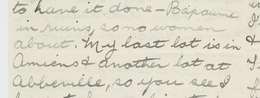 to have it done - Bapaume
in ruins, so no women
about. My last lot is in
Amiens & another lot at
Abbeville, so you see I